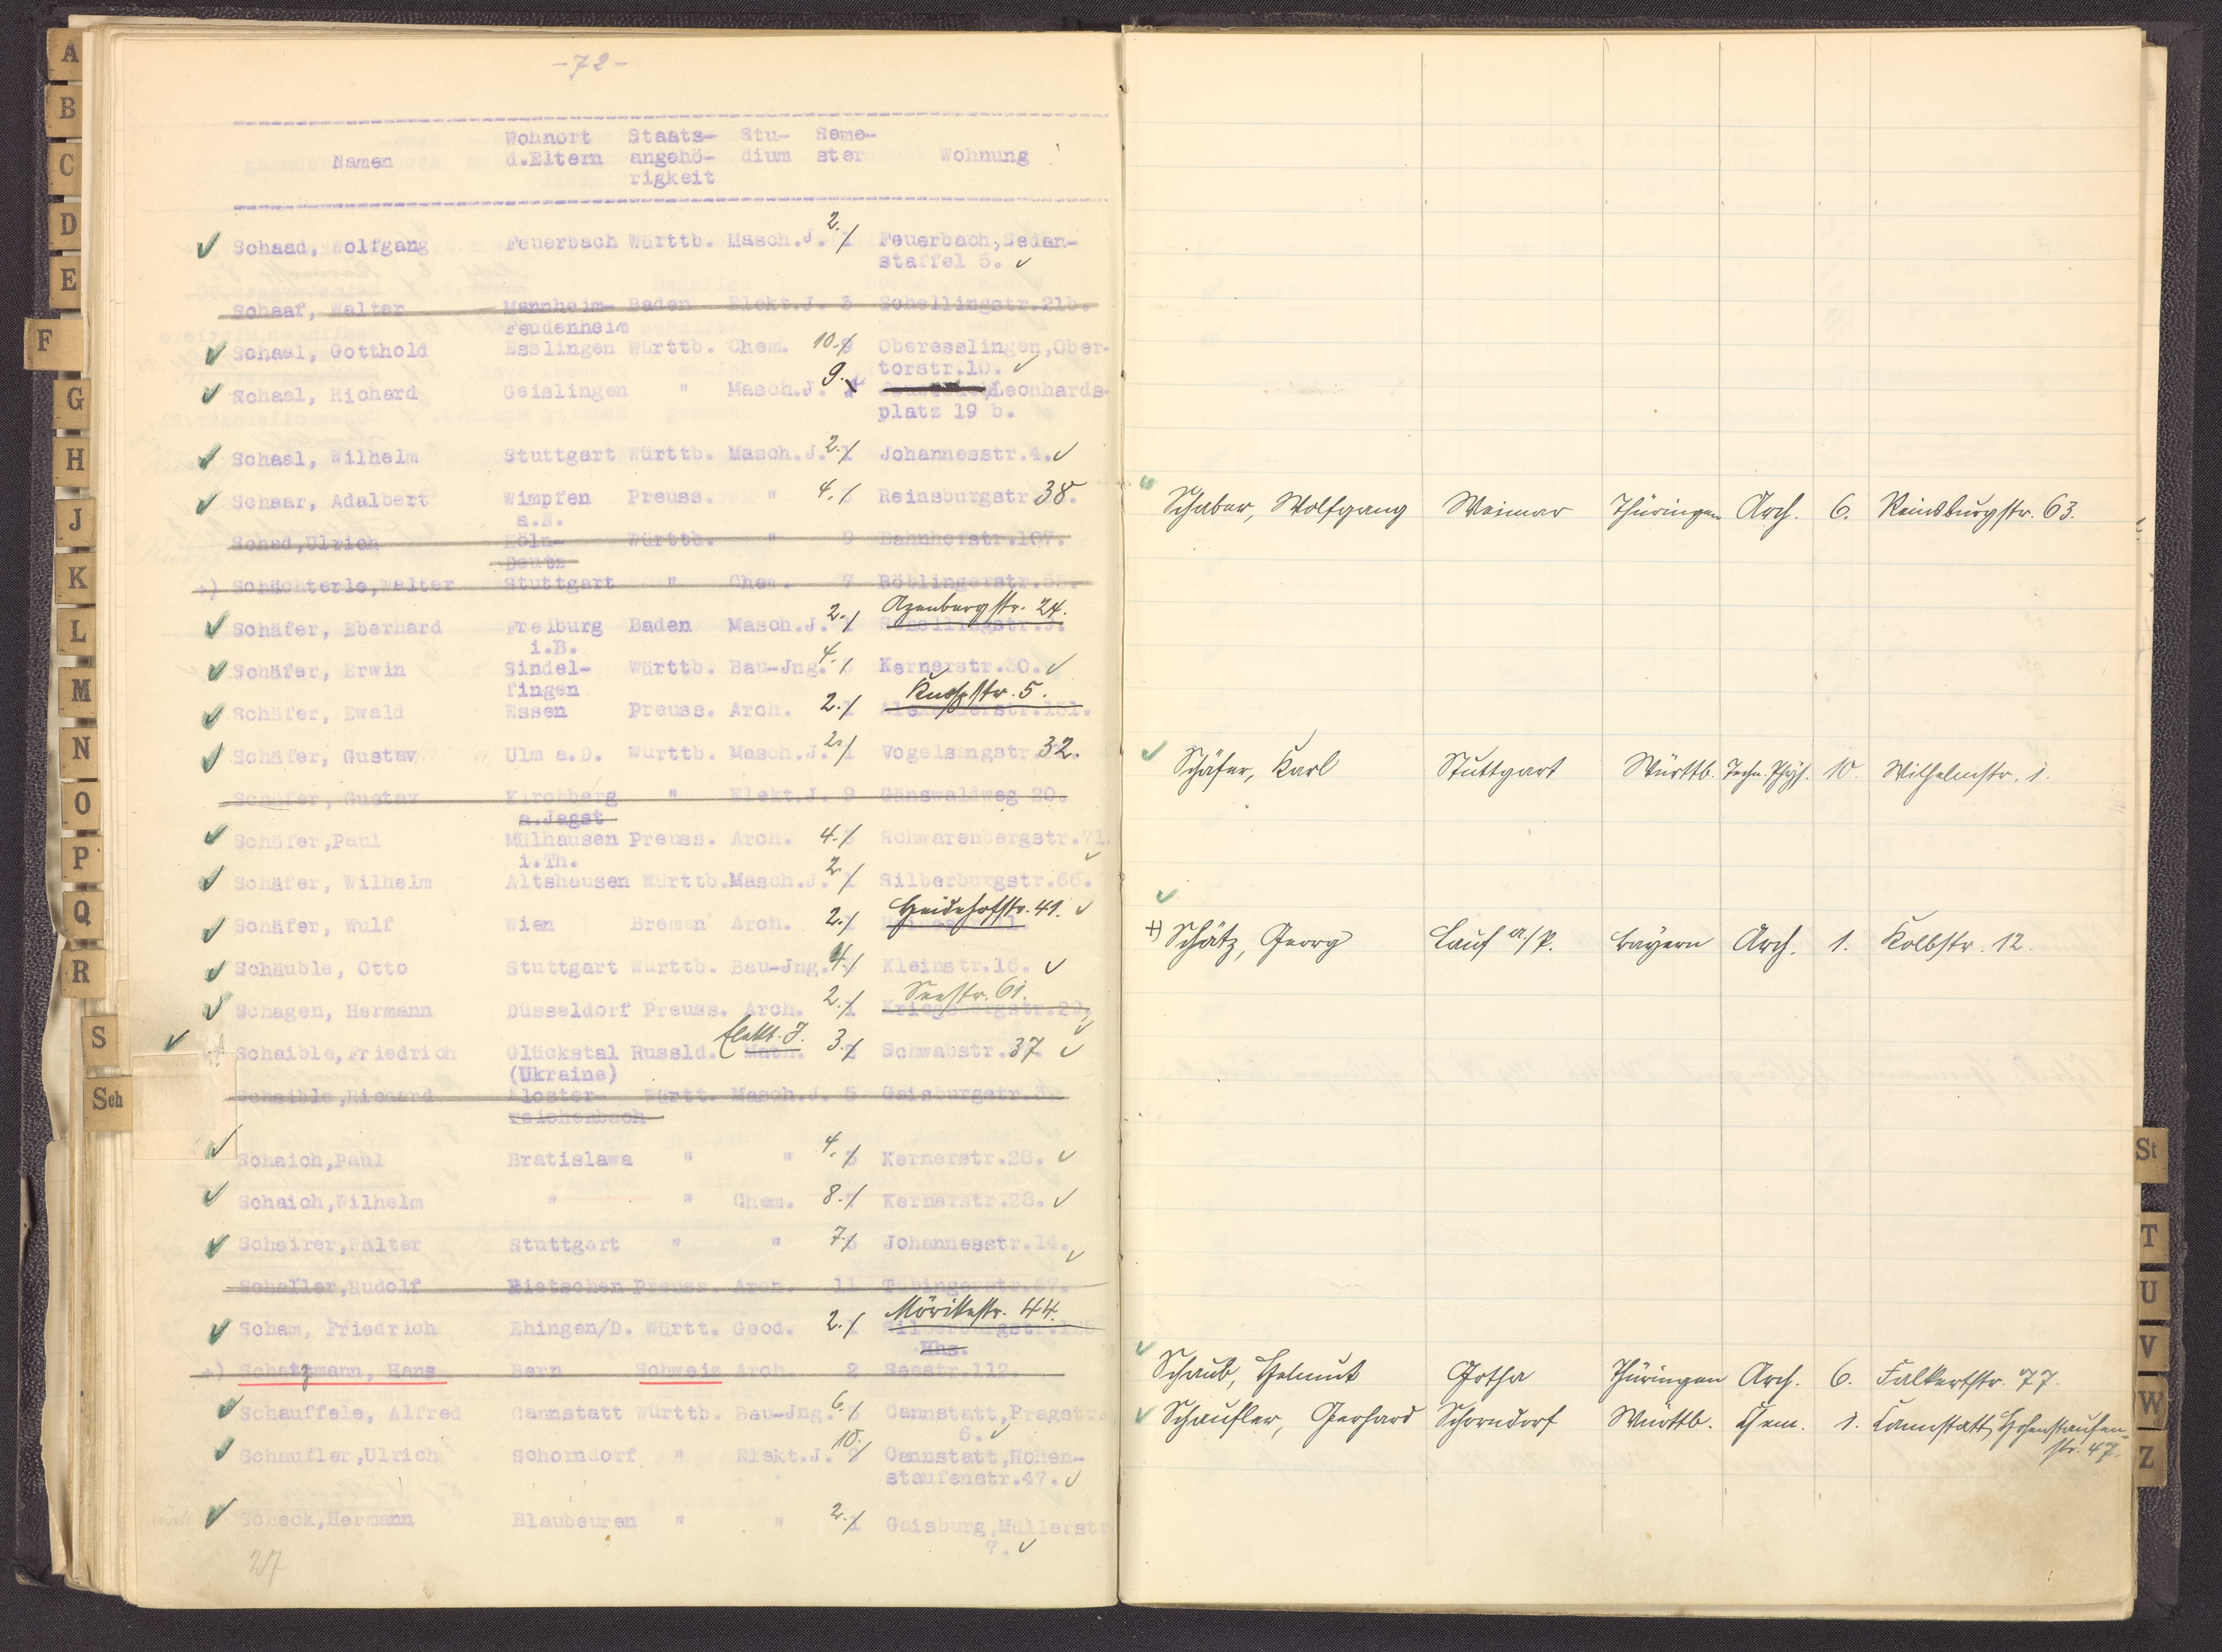 A
B
C
D
E
F
G
H
J
K
L
M
N
O
P
Q
R
S
Sch
-72-
Wohnort Staats- Stu- Seme-
Namen d.Eltern angehö- dium ster Wohnung
rigkeit
2.
Schaad, Wolfgang Feuerbach Württb. Masch.J. 1 Feuerbach,Sedan-
staffel 5.
Schaaf, Walter Mannheim- Baden Elekt.J. 3 Schellingstr.21b.
Feudenheim
Schaal, Gotthold Esslingen Württb. Chem. 10. 9 Oberesslingen,Ober-
torstr.10.
Schaal, Richard Geislingen " Masch.J. 9. Leonhards-
platz 19 b.
Schaal, Wilhelm Stuttgart Württb. Masch.J. 2. 1 Johannesstr.4.
Schaar, Adalbert Wimpfen Preuss. " 4. Reinsburgstr 38.
a.N.
Schad,Ulrich Köln- Württb. " 9 Bahnhofstr.107.
Deutz
+) Schächterle,Walter Stuttgart " Chem. 7 Böblingerstr.
Azenbergstr. 24.
Schäfer, Eberhard Freiburg Baden Masch.J. 2. 1 Schellingstr.
i.B.
Schäfer, Erwin Sindel- Württb. Bau-Jng. 4. Kernerstr.30.
fingen
Knospstr. 5.
Schäfer, Ewald Essen Preuss. Arch. 2. 1 Alexanderstr.131.
Schäfer, Gustav Ulm a.D. Württb. Masch.J. 2. 1 Vogelsangstr 32.
Schäfer, Gustav Kirchberg " Elekt.J. 9 Gänswaldweg 20.
a.Jagst
Schäfer,Paul Mülhausen Preuss. Arch. 4. 3 Schwarenbergstr.71.
i.Th.
Schäfer, Wilhelm Altshausen Württb.Masch.J. 2 1 Silberburgstr.66.
Heidehofstr. 41.
Schäfer, Wulf Wien Bremen Arch. 2. 1
Schäuble, Otto Stuttgart Württb. Bau-Jng. 4. Kleinstr.16.
Seestr. 61.
Schagen, Hermann Düsseldorf Preuss. Arch. 2. 1 Kriegsbergstr.29.
Elekt. J.
Schaible,Friedrich Glückstal Russld. Math. 3. 2 Schwabstr. 37
(Ukraine)
Schaible,Richard Kloster- Württ. Masch.J. 5 Gaisburgstr.3.
reichenbach
Schaich,Paul Bratislawa " " 4. 3 Kernerstr.28.
Schaich,Wilhelm " " Chem. 8. 7 Kernerstr.28.
Schairer,Walter Stuttgart " " 7. Johannesstr.14.
Schaller,Rudolf Rietschen Preuss. Arch. 11 Tübingerstr.67.
Mörikestr. 44.
Scham, Friedrich Ehingen/D. Württ. Geod. 2. 1 Silberburgstr.
Hhs.
+) Schatzmann, Hans Bern Schweiz Arch. 2 Seestr.112.
Schauffele, Alfred Cannstatt Württb. Bau-Jng. 6. 5 Cannstatt,Pragstr.
6.
Schaufler,Ulrich Schorndorf " Elekt.J. 10. 9 Cannstatt,Hohen-
staufenstr.47.
Scheck,Hermann Blaubeuren " " 2. 1 Gaisburg,Müllerstr
7.
27
Schaber, Wolfgang Weimar Thüringen Arch. 6. Reinsburgstr. 63.
Schäfer, Karl Stuttgart Württb. Techn. Phys. 10. Wilhelmstr. 1.
+) Schätz, Georg Lauf a./P. Bayern Arch. 1. Kolbstr. 12.
Schaub, Helmut Gotha Thüringen Arch. 6. Falkertstr. 77.
Schaufler, Gerhard Schorndorf Württb. Chem. 1. Cannstatt, Hohenstaufen-
str. 47.
St
T
U
V
W
Z